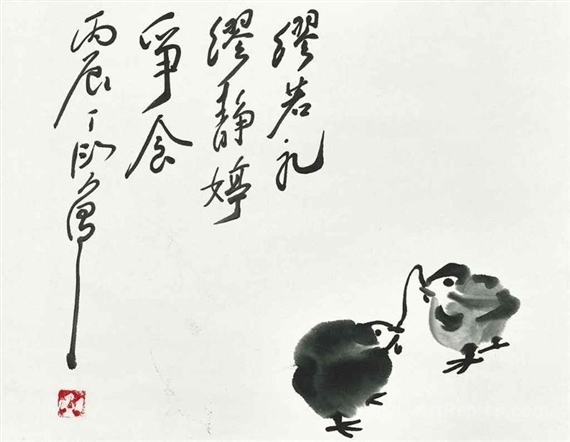 缪若礼
缪静婷
争食
丙辰丁衍庸